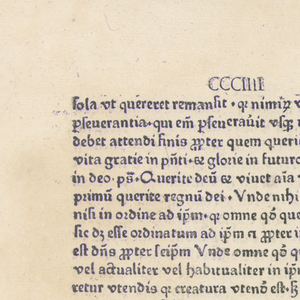 CCCIIII
ſola vt quereret remanſit · qꝛ nimiꝝ
ꝑſeuerantia · qui em̄ ꝑſeuerauit vſqꝫ
debet attendi finis ꝓpter quem queri
vita gratie in pn̄ti · & glorie in futuro
in deo · pſ · Querite deū & viuet aīa
primū querite regnū dei · Vnde nihi
niſi in ordine ad ip̄m · qꝛ omne qō que
ſic dꝫ eſſe ordinatum ad ip̄m ꝓpter
eſt dn̄s ꝓpter ſeip̄m Vnde omne qō q
vel actualiter vel habitualiter in ip̄
retur vtendis qꝛ creatura vtenō eſt ·